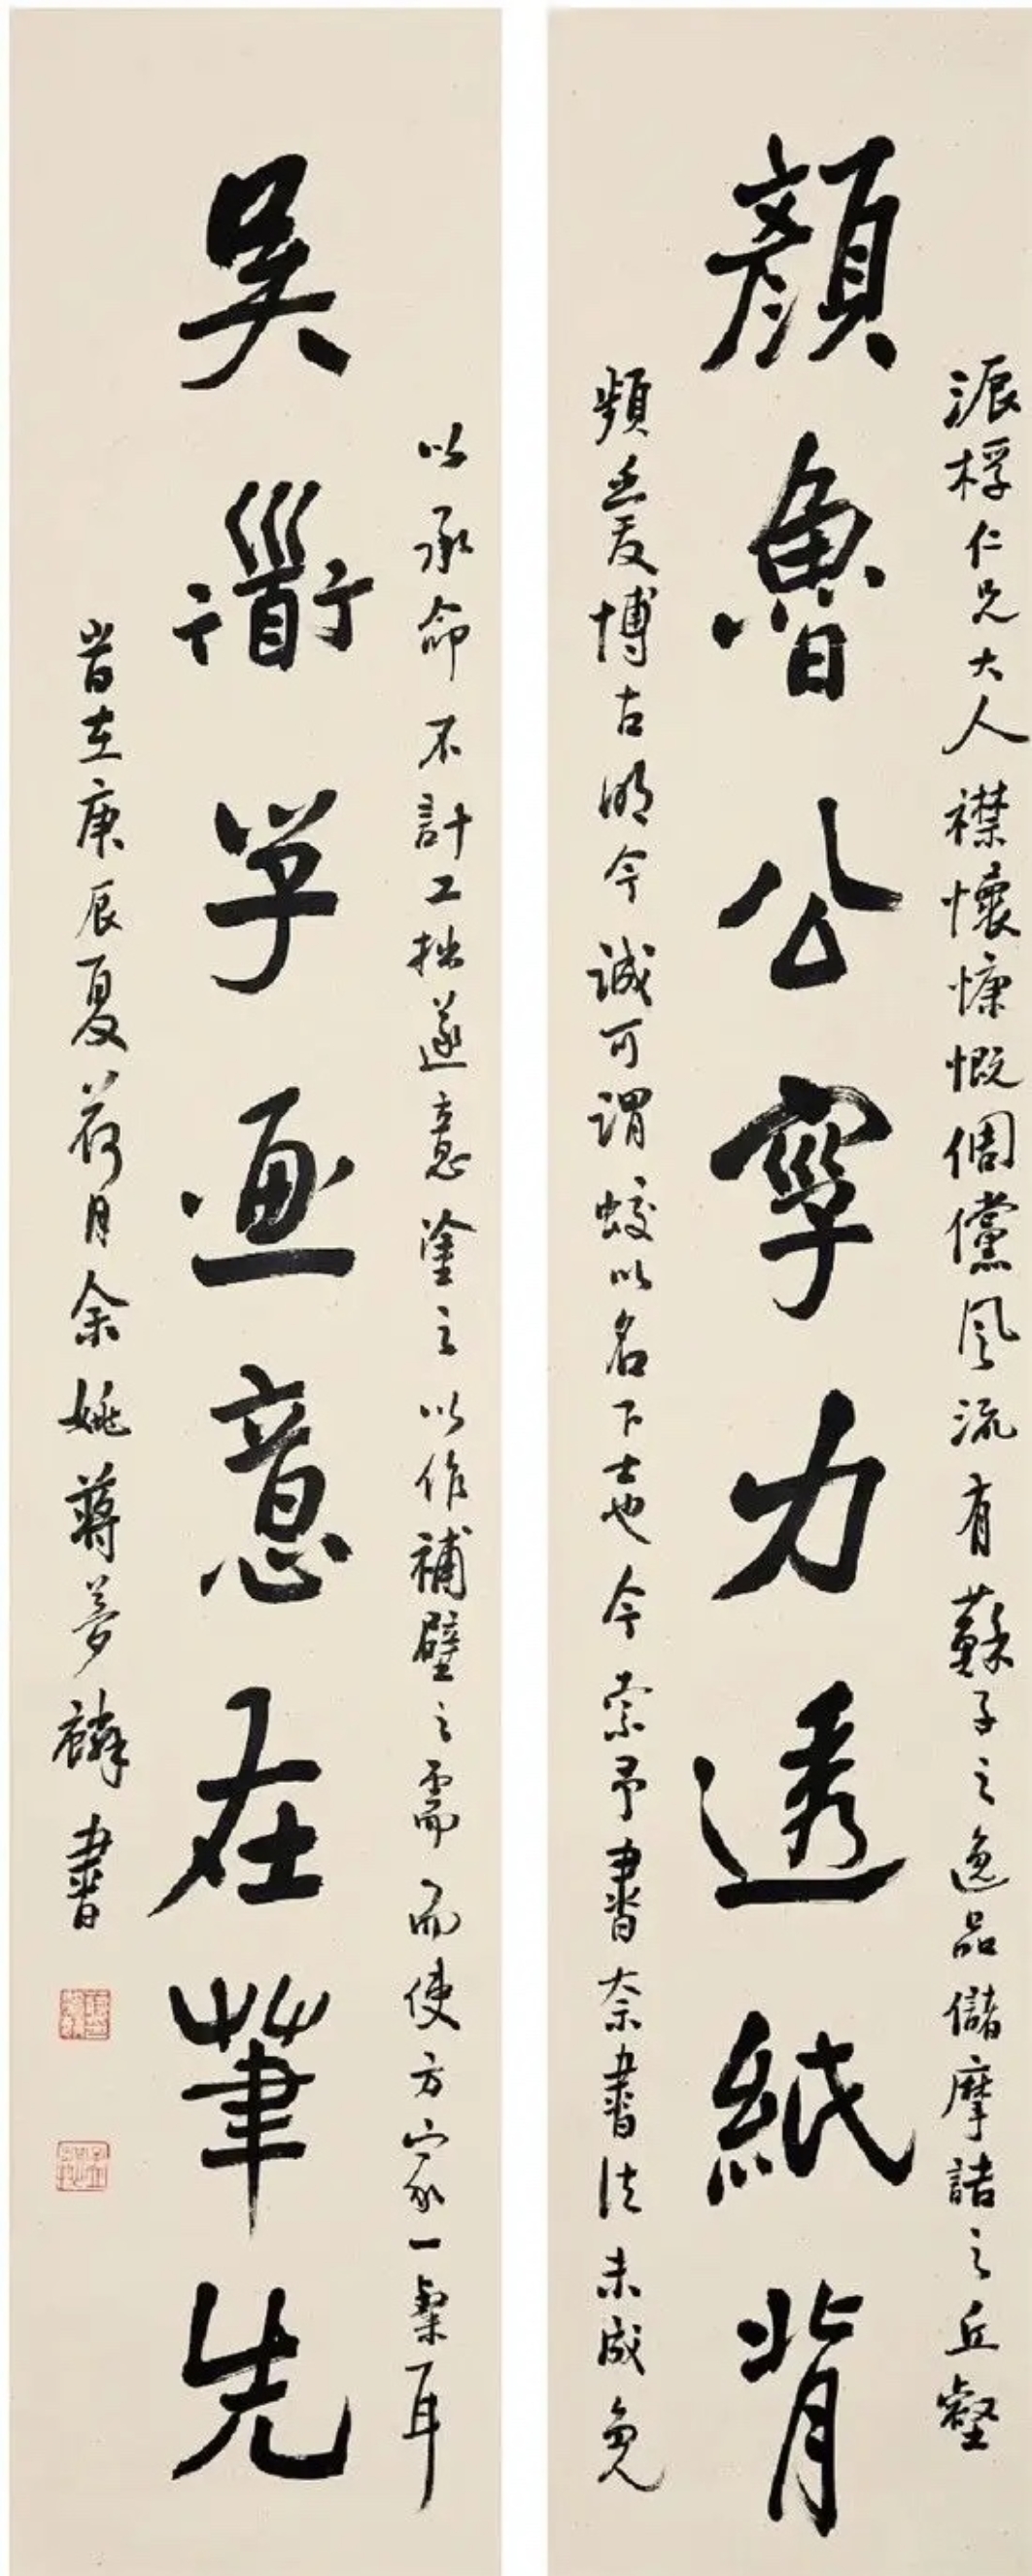 派桴仁兄大人襟懷慷慨倜儻風流有蘇子之逸品儲摩詰之丘壑
顏魯公字力透紙背
頻友博古明今誠可謂蛟以名下士也今索予書奈書法未成免
以承命不計工拙遂意塗之以作補壁之需而使方家一粲耳
吳衟子畫意在筆先
旹在庚辰夏荷月余姚蔣夢麟書